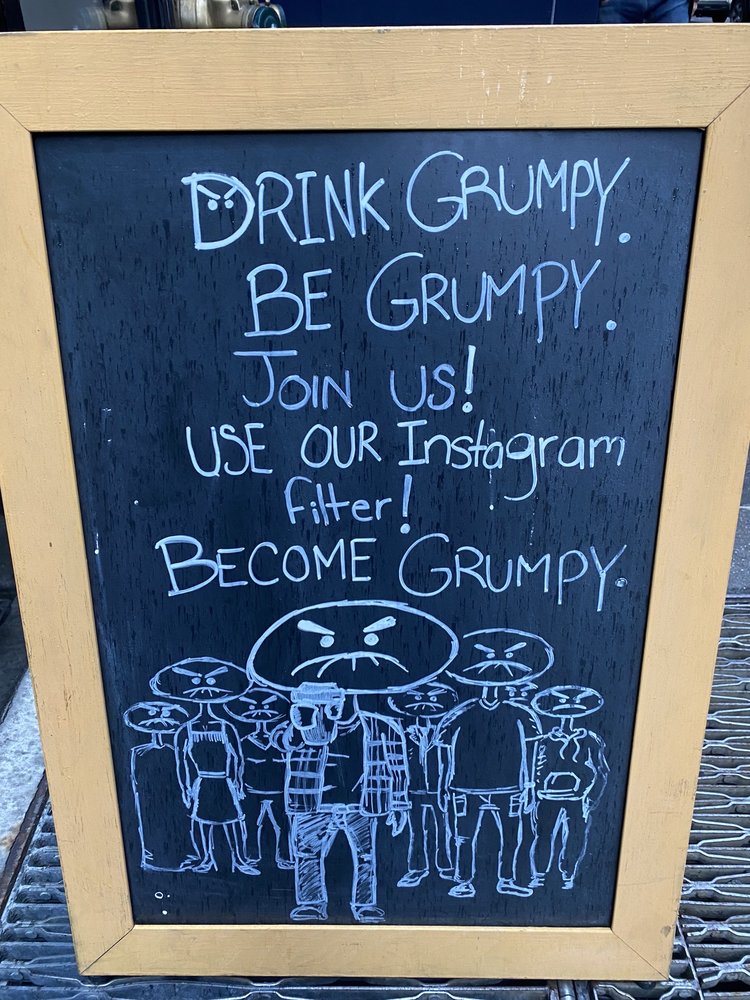 DRINK GRUMPY.
BE GRUMPY.
JOIN US!
USE OUR Instagram
filter!
BECOME GRUMPY.